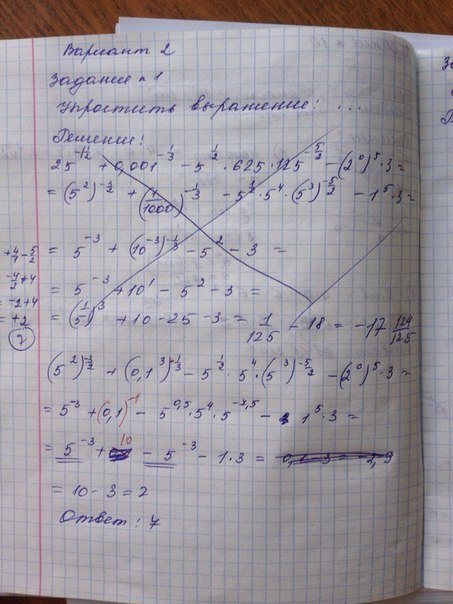 Вариант 2
Задание №1
Упростить выражение: ...
Решение:
25^(-1 1/2) + 0,001^(-1/3) - 5^(1/2) · 625 · 125^(-5/2) - (2^0)^5 · 3 =
= (5^2)^(-3/2) + (1/1000)^(-1/3) - 5^(1/2) · 5^4 · (5^3)^(-5/2) - 1^5 · 3 =
= 5^(-3) + (10^(-3))^(-1/3) - 5^2 - 3 =
= 5^(-3) + 10^1 - 5^2 - 3 =
= (1/5)^3 + 10 - 25 - 3 = 1/125 - 18 = -17 124/125
-4/2+4
= -2+4
= +2
(5^2)^(-3/2) + (0,1^3)^(-1/3) - 5^(1/2) · 5^4 · (5^3)^(-5/2) - (2^0)^5 · 3 =
= 5^(-3) + (0,1)^(-1) - 5^(0,5) · 5^4 · 5^(-7,5) - 1^5 · 3 =
= 5^(-3) + 10 - 5^(-3) - 1 · 3 =
= 10 - 3 = 2
Ответ: 7